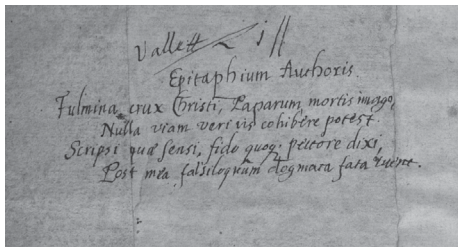 Vallett
Epitaphium Authoris.
Fulmina, crux Christi, Paparum, mortis imago,
Nulla viam veri vis cohibere potest.
Scripsi quæ sensi, fido quoq; pectore dixi,
Post mea falsiloquum dogmata fata